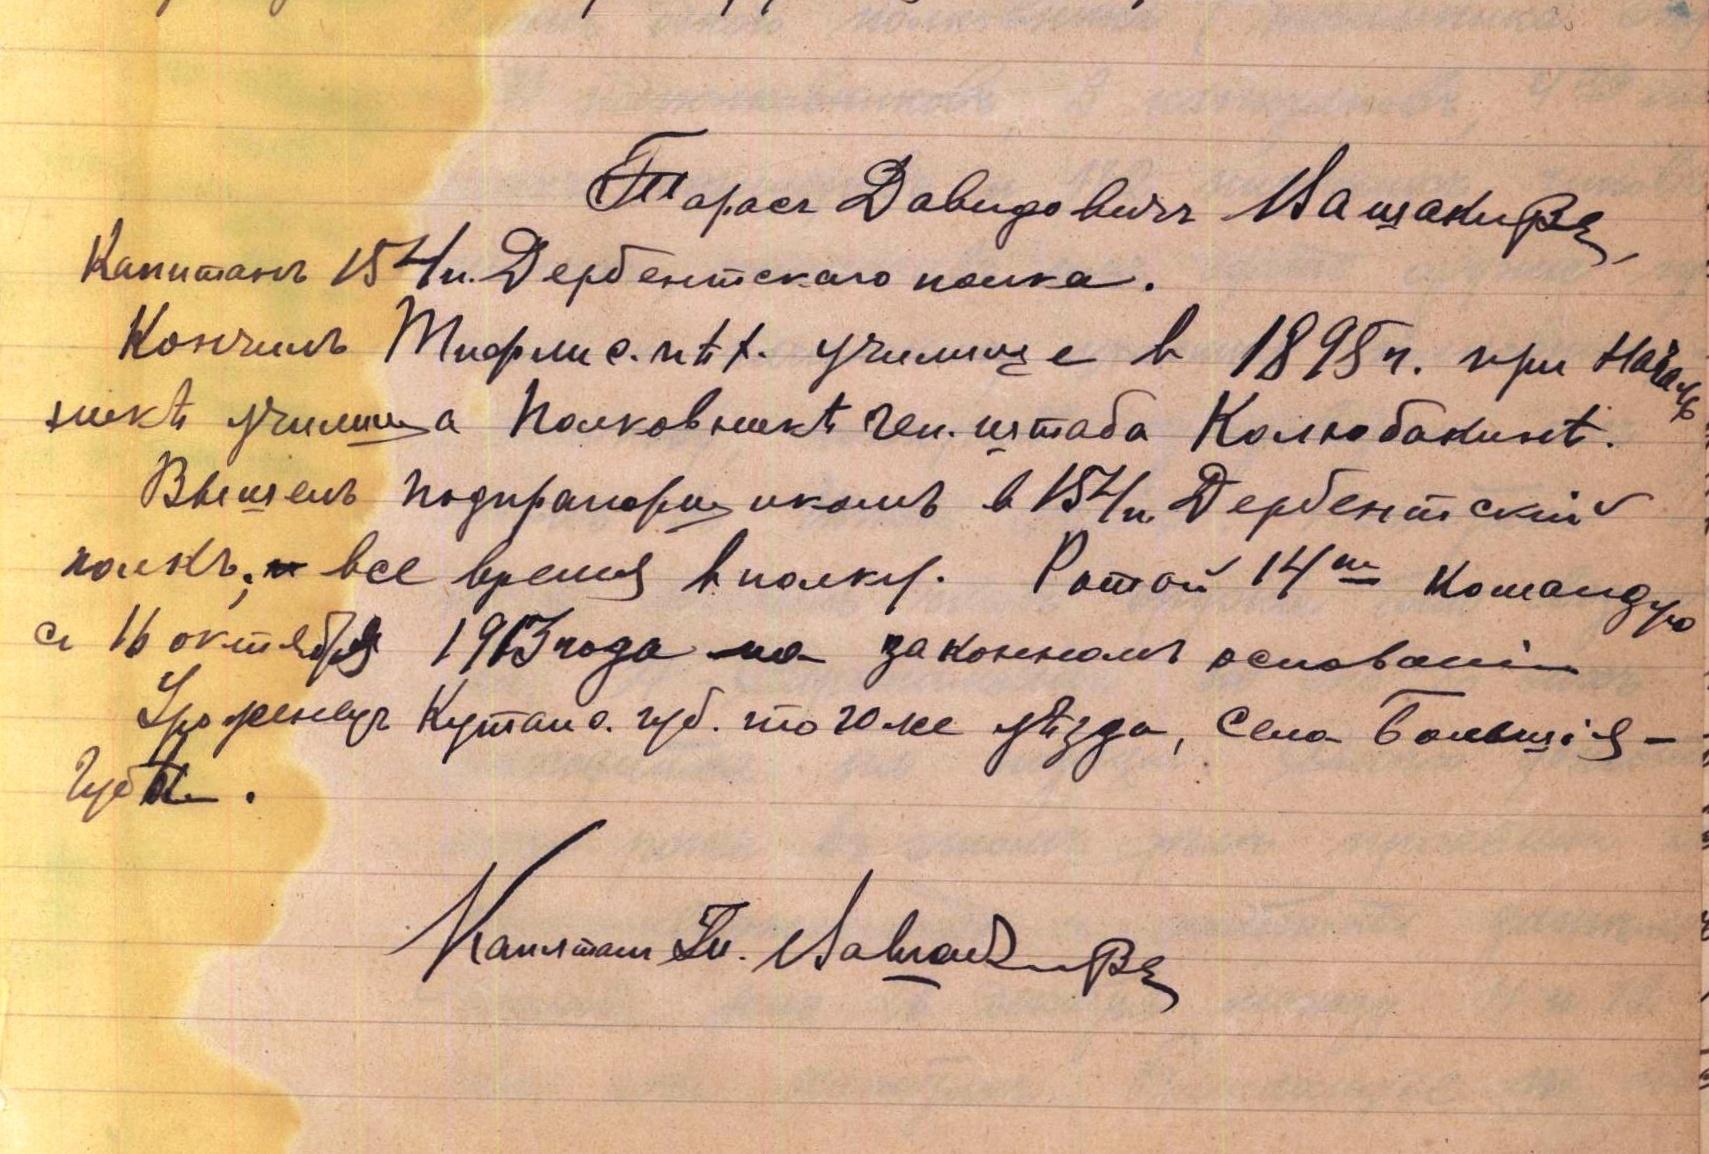 Тарасъ Давидовичъ Вашакидзе,
Капитанъ 154 п. Дербентскаго полка.
Кончилъ Тифлис. пѣх. училище в 1895 г. при Началь
никѣ училища Полковникѣ Ген. штаба Колюбакинѣ.
Вышелъ подпрапорщикомъ в 154 п. Дербентскій
полкъ; все время в полку. Ротой 14ой командую
съ 16 октября 1913 года на законномъ основаніи
Уроженецъ Кутаис. губ. того же уѣзда, села Большія-
Губы.
Капитанъ Вашакидзе